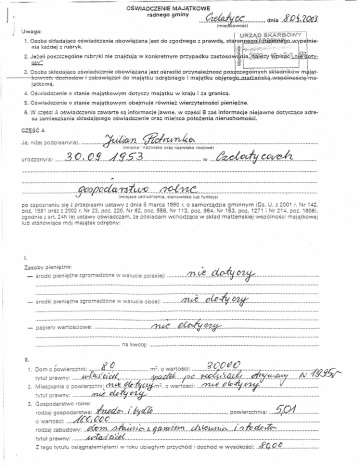 OŚWIADCZENIE MAJĄTKOWE
radnego gminy
dnia
(miejscowość)
URZĄD SKARBOWY
Uwaga:
1. Osoba składająca oświadczenie obowiązana jest do zgodnego z prawdą, starannego i zupełnego wypełnienia każdej z rubryk.
2. Jeżeli poszczególne rubryki nie znajdują w konkretnym przypadku zastosowania, należy wpisać
3. Osoba składająca oświadczenie obowiązana jest określić przynależność poszczególnych składników majątkowych, dochodów i zobowiązań do majątku odrębnego i majątku objętego małżeńską wspólnością majątkową.
4. Oświadczenie o stanie majątkowym dotyczy majątku w kraju i za granicą.
5. Oświadczenie o stanie majątkowym obejmuje również wierzytelności pieniężne.
6. W części A oświadczenia zawarte są informacje jawne, w części B zaś informacje niejawne dotyczące adresu zamieszkania składającego oświadczenie oraz miejsca położenia nieruchomości.
CZĘŚĆ A
Ja, niżej podpisany(a), Julian
(imiona i nazwisko oraz nazwisko rodowe)
urodzony(a) 30.09 1953 w
gospodarstwo rolne
(miejsce zatrudnienia, stanowisko lub funkcja)
po zapoznaniu się z przepisami ustawy z dnia 8 marca 1990 r. o samorządzie gminnym (Dz. U. z 2001 r. Nr 142, poz. 1591 oraz z 2002 r. Nr 23, poz. 220, Nr 62, poz. 558, Nr 113, poz. 984, Nr 153, poz. 1271 i Nr 214, poz. 1806), zgodnie z art. 24h tej ustawy oświadczam, że posiadam wchodzące w skład małżeńskiej wspólności majątkowej lub stanowiące mój majątek odrębny:
I.
Zasoby pieniężne:
— środki pieniężne zgromadzone w walucie polskiej: nie dotyczy
— środki pieniężne zgromadzone w walucie obcej: nie dotyczy
— papiery wartościowe: nie dotyczy
na kwotę:
II.
1. Dom o powierzchni: 80 m², o wartości: 30000
tytuł prawny: właściciel spadek po rodzicach otrzymany w 1995r
2. Mieszkanie o powierzchni: nie dotyczy m², o wartości: nie dotyczy
tytuł prawny: nie dotyczy
3. Gospodarstwo rolne:
rodzaj gospodarstwa: trzoda i bydło powierzchnia: 5,01
o wartości: 100.000
rodzaj zabudowy: dom stajnia z garażem i stodoła
tytuł prawny: właściciel
Z tego tytułu osiągnąłem(ęłam) w roku ubiegłym przychód i dochód w wysokości: